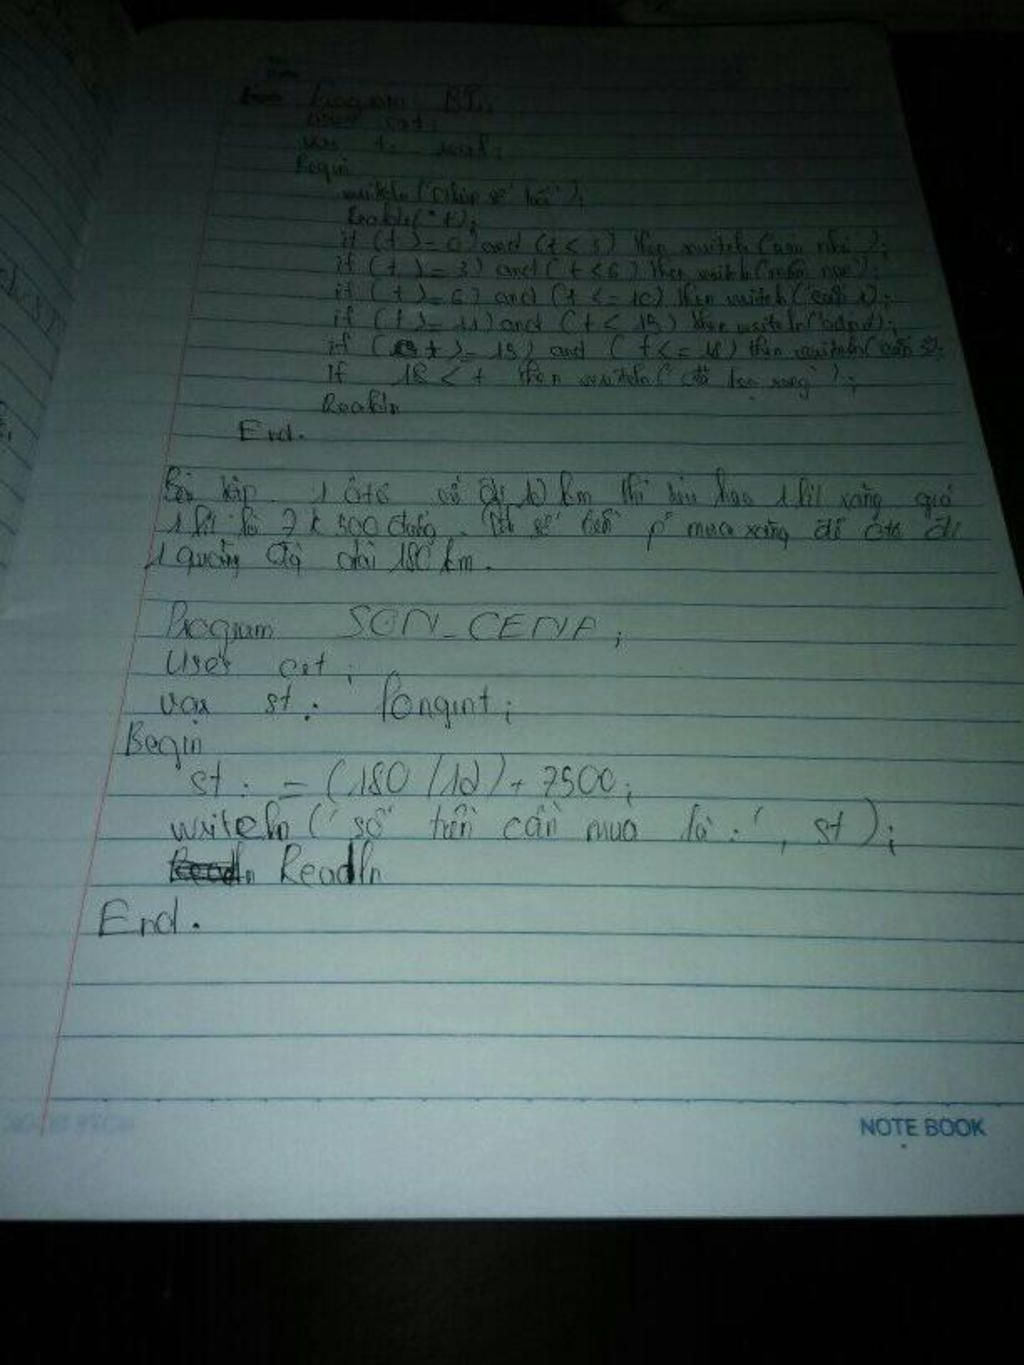 Program BT
uses crt;
var t: real;
Begin
writeln('Nhập số tuổi');
Readln(t);
if (t>=0) and (t<3) then writeln(
if (t>=3) and (t<6) then writeln(
if (t>=6) and (t<=10) then writeln('cấp 1');
if (t>=11) and (t<15) then writeln(
if (t>=15) and (t<=18) then writeln('cấp 3);
If 18<t then writeln(
Readln
End.
Bài tập. 1 ôtô cứ đi 12 km thì tiêu hao 1 lít xăng giá
1 lít là 7k500 đồng. số tiền p² mua xăng để ôtô đi
1 quãng dài 180 km.
Program SON_CENA;
Uses crt;
var st: longint;
Begin
st:=(180/12)+7500;
writeln('số tiền cần mua là:', st);
Readln
End.
NOTE BOOK